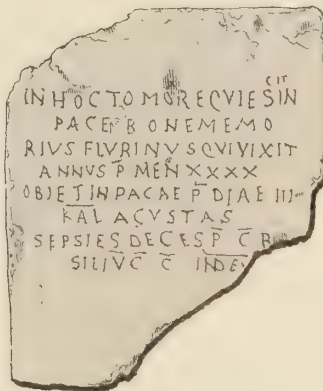 CIT
INHOCTOMOREQVIESIN
PACE BONEMEMO
RIVS FLVRINVS QVIVIXIT
ANNVS P̄ MEN XXXX
OBIET IN PACAE P̄ DIAE III
KAL AGVSTAS
SEPSIES DECES P̄ C̄ B
SILIVC C̄ INDE